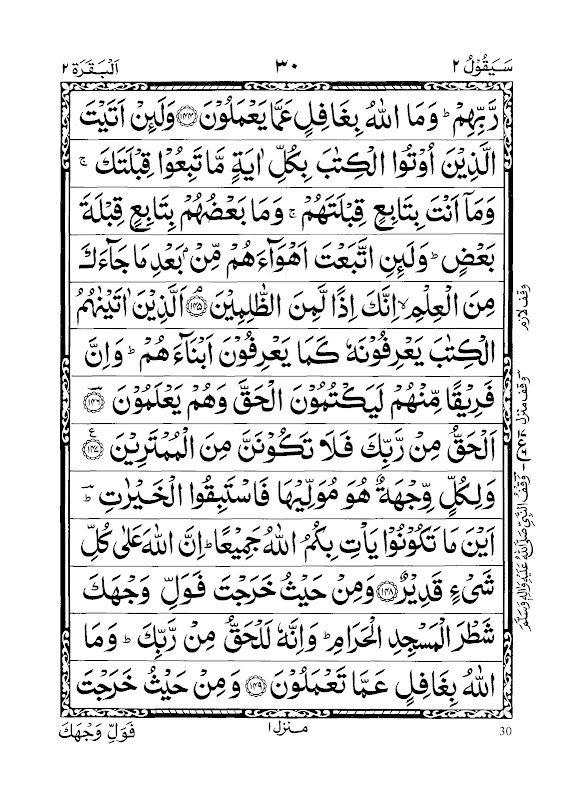 سَيَقُوْلُ ٢
٣٠
اَلْبَقَرَة ٢
رَّبِّهِمْ ؕ وَمَا اللّٰهُ بِغَافِلٍ عَمَّا يَعْمَلُوْنَ ﴿١٤٤﴾ وَلَىِٕنْ اَتَيْتَ
الَّذِيْنَ اُوْتُوا الْكِتٰبَ بِكُلِّ اٰيَةٍ مَّا تَبِعُوْا قِبْلَتَكَ ۚ
وَمَاۤ اَنْتَ بِتَابِعٍ قِبْلَتَهُمْ ۚ وَمَا بَعْضُهُمْ بِتَابِعٍ قِبْلَةَ
بَعْضٍ ؕ وَلَىِٕنِ اتَّبَعْتَ اَهْوَآءَهُمْ مِّنْۢ بَعْدِ مَا جَآءَكَ
مِنَ الْعِلْمِ ۙ اِنَّكَ اِذًا لَّمِنَ الظّٰلِمِيْنَ ﴿١٤٥﴾ اَلَّذِيْنَ اٰتَيْنٰهُمُ
الْكِتٰبَ يَعْرِفُوْنَهٗ كَمَا يَعْرِفُوْنَ اَبْنَآءَهُمْ ؕ وَاِنَّ
فَرِيْقًا مِّنْهُمْ لَيَكْتُمُوْنَ الْحَقَّ وَهُمْ يَعْلَمُوْنَ ﴿١٤٦﴾
اَلْحَقُّ مِنْ رَّبِّكَ فَلَا تَكُوْنَنَّ مِنَ الْمُمْتَرِيْنَ ﴿١٤٧﴾ ع
وَلِكُلٍّ وِّجْهَةٌ هُوَ مُوَلِّيْهَا فَاسْتَبِقُوا الْخَيْرٰتِ ؕ
اَيْنَ مَا تَكُوْنُوْا يَاْتِ بِكُمُ اللّٰهُ جَمِيْعًا ؕ اِنَّ اللّٰهَ عَلٰى كُلِّ
شَىْءٍ قَدِيْرٌ ﴿١٤٨﴾ وَمِنْ حَيْثُ خَرَجْتَ فَوَلِّ وَجْهَكَ
شَطْرَ الْمَسْجِدِ الْحَرَامِ ؕ وَاِنَّهٗ لَلْحَقُّ مِنْ رَّبِّكَ ؕ وَمَا
اللّٰهُ بِغَافِلٍ عَمَّا تَعْمَلُوْنَ ﴿١٤٩﴾ وَمِنْ حَيْثُ خَرَجْتَ
وقف لازم
وقف منزل
وَقْفُ النَّبِىِّ صَلَّى اللّٰهُ عَلَيْهِ وَاٰلِهٖ وَسَلَّمَ
فَوَلِّ وَجْهَكَ
منزل ١
30